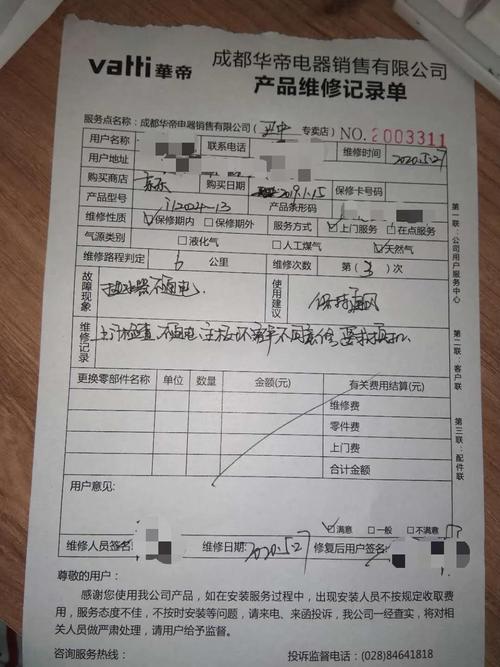 vatti 華帝 成都华帝电器销售有限公司
产品维修记录单
服务点名称：成都华帝电器销售有限公司（ 专卖店） NO.2003311
用户名称 联系电话
用户地址 维修时间 2020.5.27
购买商店 京东 购买日期 2019.1.15 保修卡号码
产品型号 i12024-13 产品条形码
维修性质 ☑保修期内 □保修期外 服务方式 ☑上门服务 □在点服务
气源类别 □液化气 □人工煤气 ☑天然气
维修路程判定 6 公里 维修次数 第（3）次
故障现象 热水器不通电 使用建议 保持通风
维修记录 上门检查 不通电 主板坏 不同意维修 要求换机
更换零部件名称 单位 数量 金额(元) 有关费用结算(元)
维修费
零件费
上门费
合计金额
用户意见：
☑满意 □一般 □不满意
维修人员签名： 维修日期：2020.5.27 修复后用户签名：
尊敬的用户：
感谢您使用我公司产品，如在安装服务过程中，出现安装人员不按规定收取费
用，服务态度不佳，不按时安装等问题，请来电、来函投诉，我公司一经查实，将对相
关人员做严肃处理，请用户给予监督。
咨询服务热线： 投诉监督电话：(028)84641818
第一联：公司用户服务中心
第二联：客户联
第三联：配件联